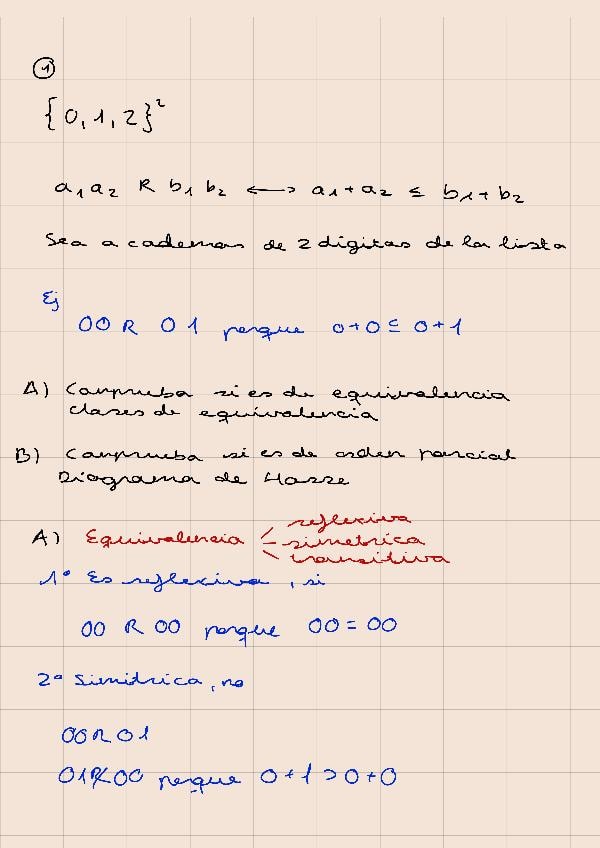 1
{0,1,2}²
a₁a₂ R b₁b₂ ⟷ a₁+a₂ ≤ b₁+b₂
Sea a cadenas de 2 digitas de la lista
Ej
00 R 01 porque 0+0 ≤ 0+1
A) Comprueba si es de equivalencia
clases de equivalencia
B) Comprueba si es de orden parcial
Diagrama de Hasse
A) Equivalencia
reflexiva
simetrica
transitiva
1º Es reflexiva, si
00 R 00 porque 00 = 00
2º Simétrica, no
00 R 01
01 R̸ 00 porque 0+1 > 0+0